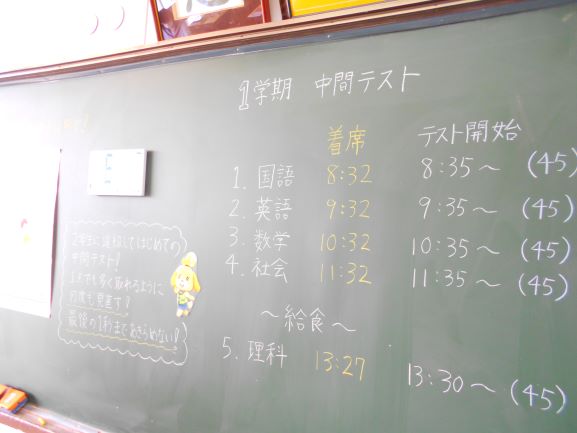 1学期 中間テスト
着席 テスト開始
1. 国語 8:32 8:35～ (45)
2. 英語 9:32 9:35～ (45)
3. 数学 10:32 10:35～ (45)
4. 社会 11:32 11:35～ (45)
～給食～
5. 理科 13:27 13:30～ (45)
2年生に進級してはじめての
中間テスト!
1点でも多く取れるように
何度も見直す!
最後の1秒まであきらめない!